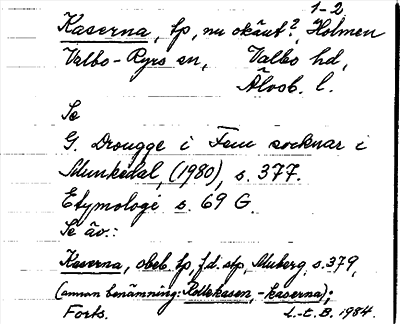 1-2.
Kaserna, tp, nu okänt?, Holmen
Valbo-Ryrs sn, Valbo hd,
Älvsb. l.
Se
G. Drougge i Fem socknar i
Munkedal, (1980), s. 377.
Etymologi s. 69 G.
Se äv.:
Kaserna, obeb. tp, f.d. stp, Muberg, s. 379,
(annan benämning: -kasen, -kaserna);
Forts. L-t. B. 1984.